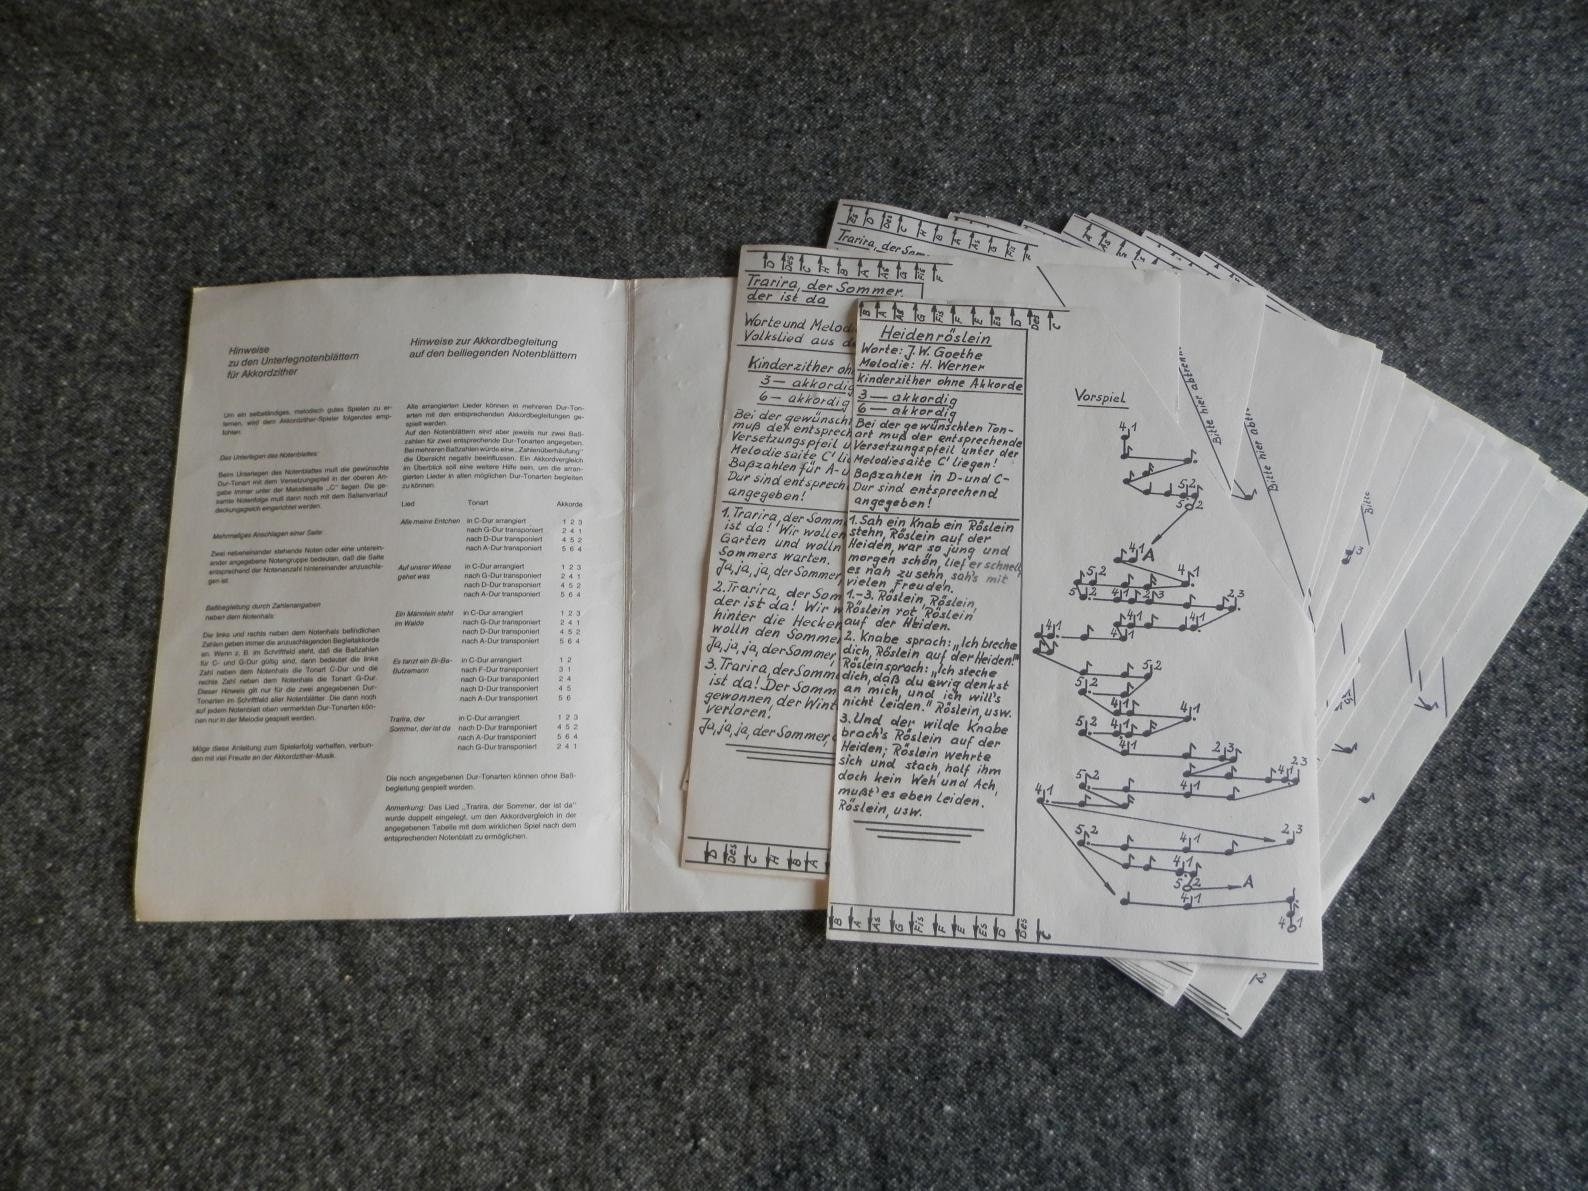 Hinweise
zu den Unterlegnotenblättern
für Akkordzither
Um ein selbständiges, melodisch gutes Spielen zu er-
lernen, wird dem Akkordzither-Spieler folgendes emp-
fohlen:
Das Unterlegen des Notenblattes:
Beim Unterlegen des Notenblattes muß die gewünschte
Dur-Tonart mit dem Versetzungspfeil in der oberen An-
gabe immer unter der Melodiesaite „C" liegen. Die ge-
samte Notenfolge muß dann noch mit dem Saitenverlauf
deckungsgleich eingerichtet werden.
Mehrmaliges Anschlagen einer Saite:
Zwei nebeneinander stehende Noten oder eine unterein-
ander angegebene Notengruppe bedeuten, daß die Saite
entsprechend der Notenanzahl hintereinander anzuschla-
gen ist.
Baßbegleitung durch Zahlenangaben
neben dem Notenhals:
Die links und rechts neben dem Notenhals befindlichen
Zahlen geben immer die anzuschlagenden Begleitakkorde
an. Wenn z. B. im Schriftfeld steht, daß die Baßzahlen
für C- und G-Dur gültig sind, dann bedeutet die linke
Zahl neben dem Notenhals die Tonart C-Dur und die
rechte Zahl neben dem Notenhals die Tonart G-Dur.
Dieser Hinweis gilt nur für die zwei angegebenen Dur-
Tonarten im Schriftfeld aller Notenblätter. Die dann noch
auf jedem Notenblatt oben vermerkten Dur-Tonarten kön-
nen nur in der Melodie gespielt werden.
Möge diese Anleitung zum Spielerfolg verhelfen, verbun-
den mit viel Freude an der Akkordzither-Musik.
Hinweise zur Akkordbegleitung
auf den beiliegenden Notenblättern
Alle arrangierten Lieder können in mehreren Dur-Ton-
arten mit den entsprechenden Akkordbegleitungen ge-
spielt werden.
Auf den Notenblättern sind aber jeweils nur zwei Baß-
zahlen für zwei entsprechende Dur-Tonarten angegeben.
Bei mehreren Baßzahlen würde eine „Zahlenüberhäufung"
die Übersicht negativ beeinflussen. Ein Akkordvergleich
im Überblick soll eine weitere Hilfe sein, um die arran-
gierten Lieder in allen möglichen Dur-Tonarten begleiten
zu können.
Lied Tonart Akkorde
Alle meine Entchen in C-Dur arrangiert 1 2 3
nach G-Dur transponiert 2 4 1
nach D-Dur transponiert 4 5 2
nach A-Dur transponiert 5 6 4
Auf unsrer Wiese in C-Dur arrangiert 1 2 3
gehet was nach G-Dur transponiert 2 4 1
nach D-Dur transponiert 4 5 2
nach A-Dur transponiert 5 6 4
Ein Männlein steht in C-Dur arrangiert 1 2 3
im Walde nach G-Dur transponiert 2 4 1
nach D-Dur transponiert 4 5 2
nach A-Dur transponiert 5 6 4
Es tanzt ein Bi-Ba- in C-Dur arrangiert 1 2
Butzemann nach F-Dur transponiert 3 1
nach G-Dur transponiert 2 4
nach D-Dur transponiert 4 5
nach A-Dur transponiert 5 6
Trarira, der in C-Dur arrangiert 1 2 3
Sommer, der ist da nach D-Dur transponiert 4 5 2
nach A-Dur transponiert 5 6 4
nach G-Dur transponiert 2 4 1
Die noch angegebenen Dur-Tonarten können ohne Baß-
begleitung gespielt werden.
Anmerkung: Das Lied „Trarira, der Sommer, der ist da"
wurde doppelt eingelegt, um den Akkordvergleich in der
angegebenen Tabelle mit dem wirklichen Spiel nach dem
entsprechenden Notenblatt zu ermöglichen.
Es D Des C H B A As G Fis F
Trarira, der Som
D Des C H B A As G Fis F
Trarira, der Sommer,
der ist da
Worte und Melod
Volkslied aus d
Kinderzither oh
3 — akkordig
6 — akkordig
Bei der gewünscht
muß der entsprech
Versetzungspfeil u
Melodiesaite C' lie
Baßzahlen für A- u
Dur sind entsprech
angegeben!
1. Trarira, der Somm
ist da! Wir wollen
Garten und wolln
Sommers warten.
Ja, ja, ja, der Sommer,
2. Trarira, der Som
der ist da! Wir w
hinter die Hecken
wolln den Sommer
Ja, ja, ja, der Sommer,
3. Trarira, der Somm
ist da! Der Somm
gewonnen, der Wint
verloren!
Ja, ja, ja, der Sommer,
D Des C H B A
B A As G Fis F E Es D Des C
Heidenröslein
Worte: J. W. Goethe
Melodie: H. Werner
Kinderzither ohne Akkorde
3 — akkordig
6 — akkordig
Bei der gewünschten Ton-
art muß der entsprechende
Versetzungspfeil unter der
Melodiesaite C' liegen!
Baßzahlen in D- und C-
Dur sind entsprechend
angegeben!
1. Sah ein Knab ein Röslein
stehn, Röslein auf der
Heiden, war so jung und
morgen schön, lief er schnell,
es nah zu sehn, sah's mit
vielen Freuden.
1.-3. Röslein, Röslein,
Röslein rot, Röslein
auf der Heiden.
2. Knabe sprach: „Ich breche
dich, Röslein auf der Heiden!"
Röslein sprach: „Ich steche
dich, daß du ewig denkst
an mich, und ich will's
nicht leiden." Röslein, usw.
3. Und der wilde Knabe
brach's Röslein auf der
Heiden; Röslein wehrte
sich und stach, half ihm
doch kein Weh' und Ach,
mußt' es eben leiden.
Röslein, usw.
B A As G Fis F E Es D Des C
Vorspiel
4 1
5 2
5 2
4 1 A
5 2 4 1
5 2 4 1 2 3 2 3
4 1 4 1
4 1 4 1
5 2
5 2
4 1 4 1
5 2 4 1
4 1 2 3
2 3
4 1
5 2 4 1
4 1
5 2 4 1 2 3
4 1
5 2 A
4 1
4 1
Bitte hier abtrenn
Bitte hier abt
Bitte